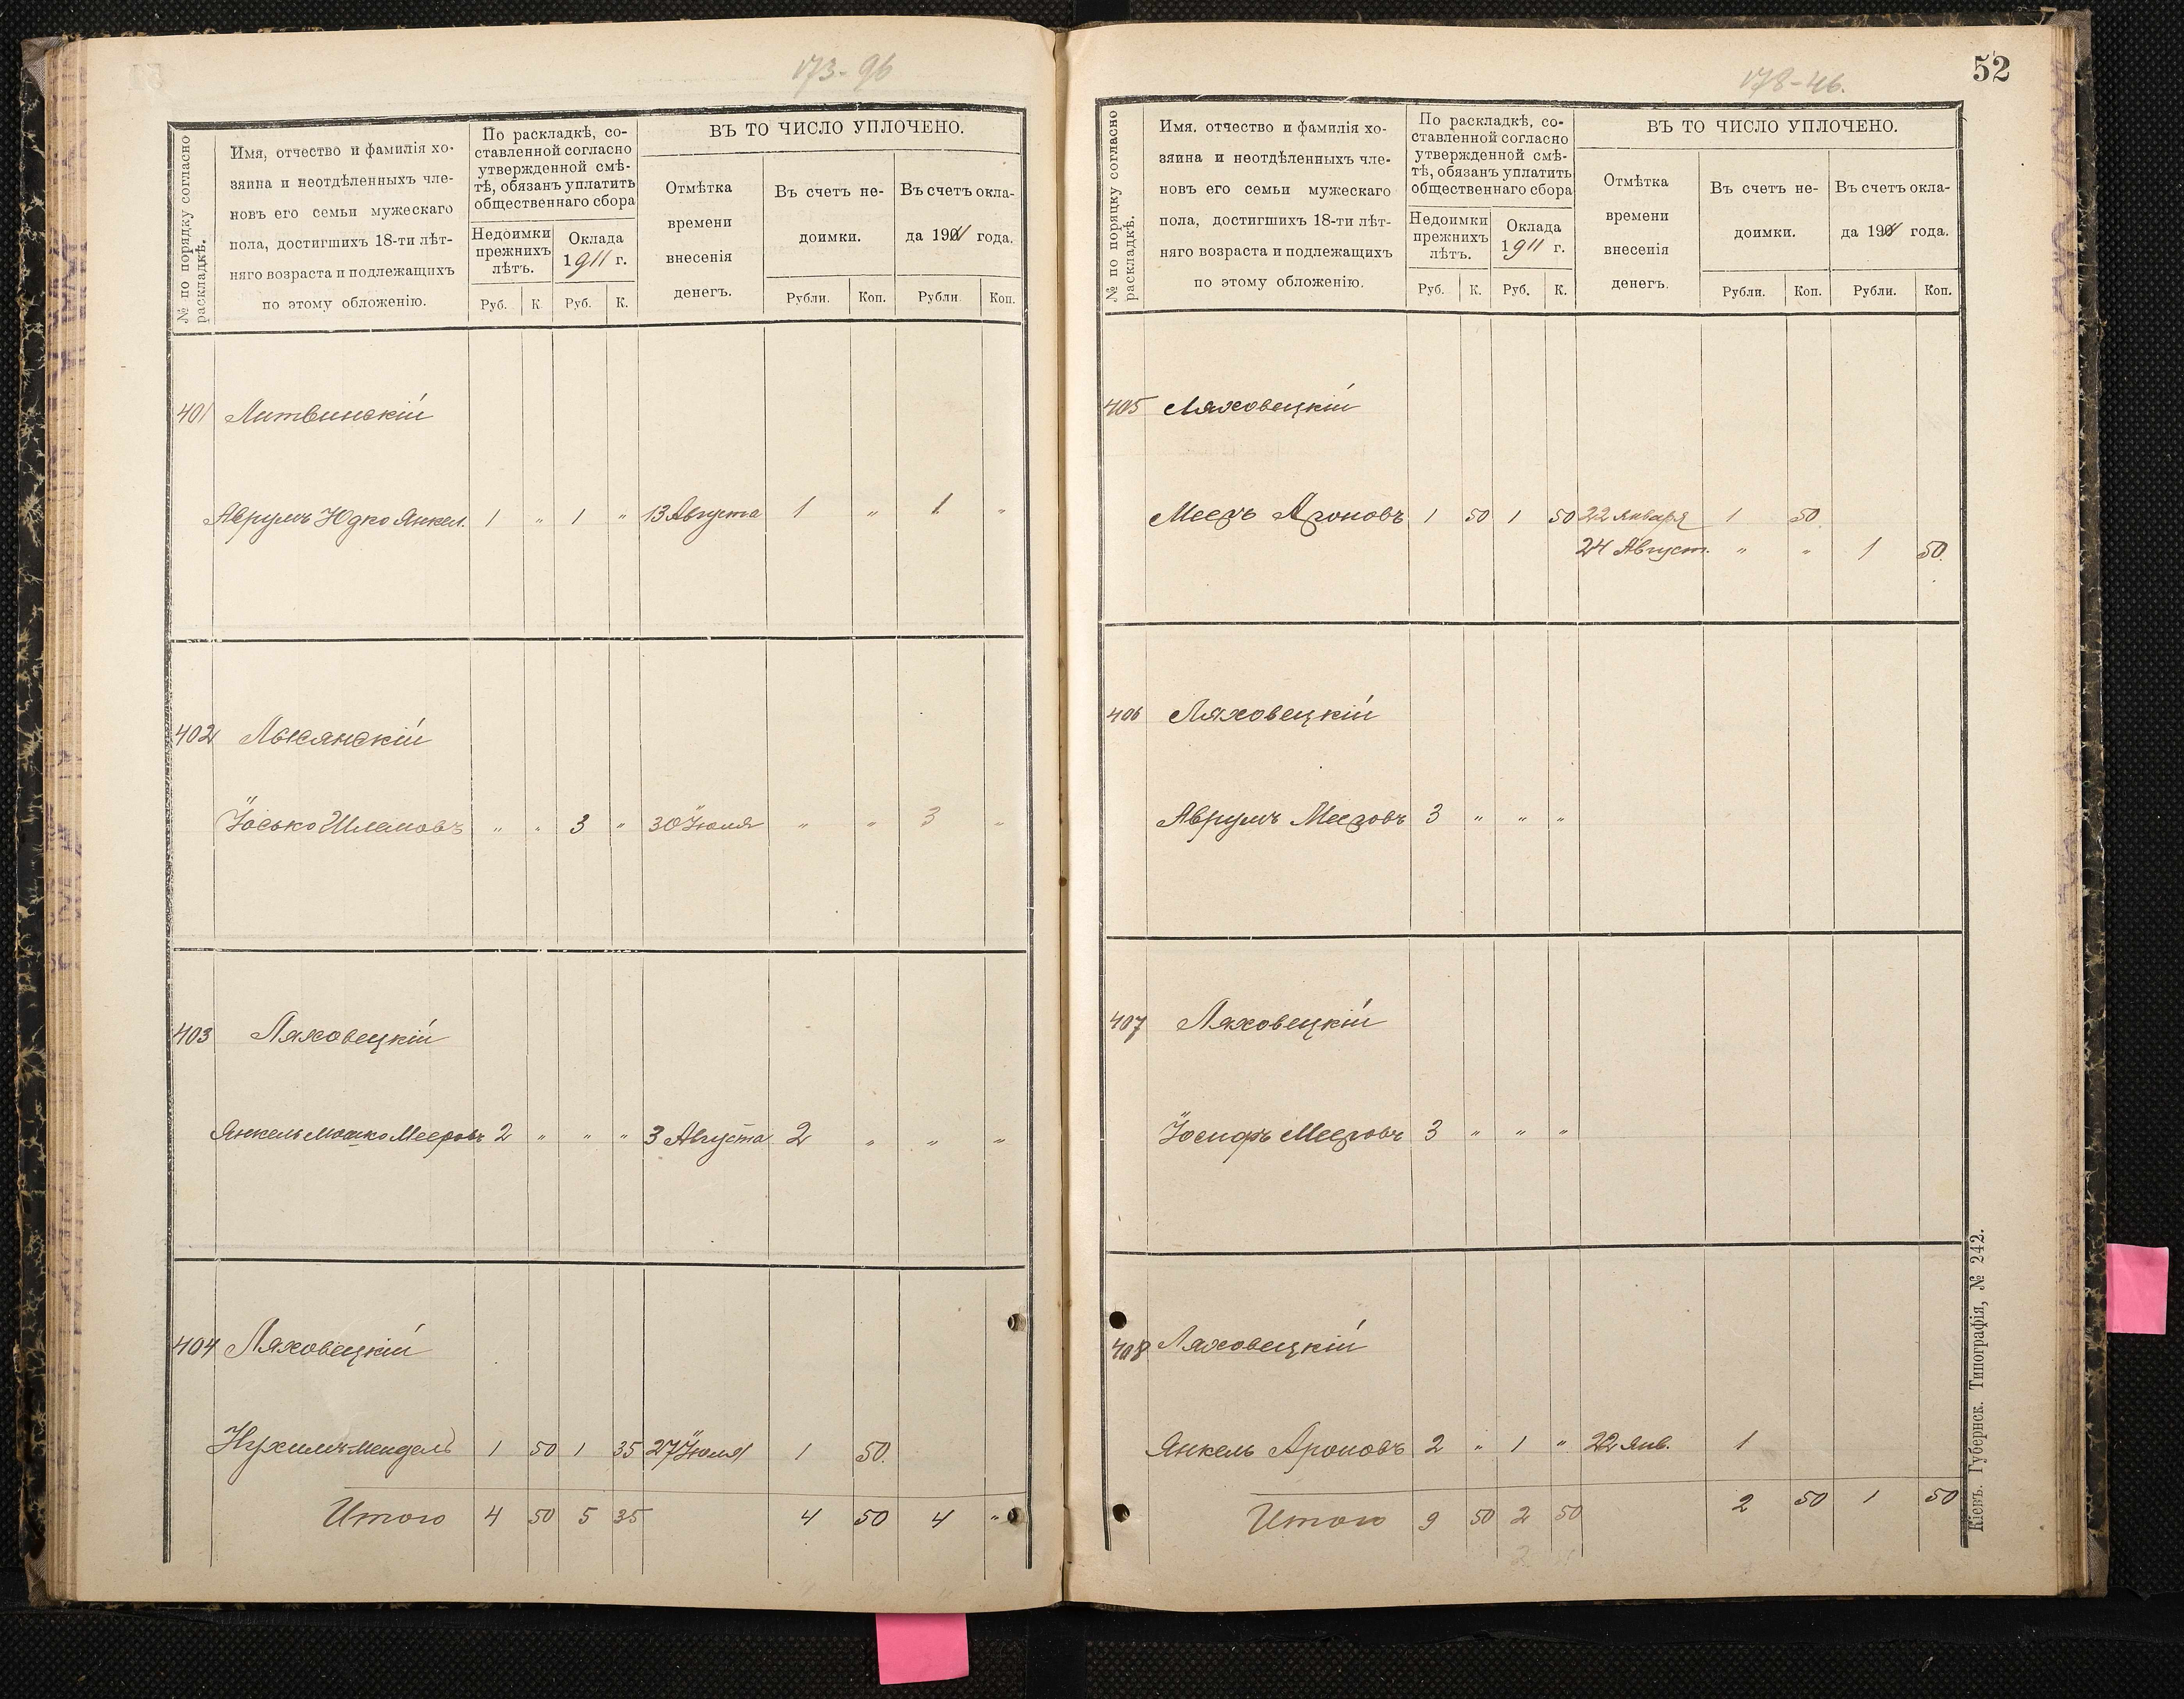 173-96
№ по порядку согласно
раскладкѣ.
Имя, отчество и фамилія хо-
зяина и неотдѣленныхъ чле-
новъ его семьи мужескаго
пола, достигшихъ 18-ти лѣт-
няго возраста и подлежащихъ
по этому обложенію.
По раскладкѣ, со-
ставленной согласно
утвержденной смѣ-
тѣ, обязанъ уплатить
общественнаго сбора
Недоимки
прежнихъ
лѣтъ.
Оклада
1911 г.
Руб. К. Руб. К.
ВЪ ТО ЧИСЛО УПЛОЧЕНО.
Отмѣтка
времени
внесенія
денегъ.
Въ счетъ не-
доимки.
Въ счетъ окла-
да 1911 года.
Рубли. Коп. Рубли. Коп.
401 Литвинскій
Аврумъ Юдко Янкел. 1 " 1 " 13 Августа 1 " 1 "
402 Лысянскій
Іосько Шлемовъ " " 3 " 30 Іюля " " 3 "
403 Ляховецкій
Янкель Мошко Мееровъ 2 " " " 3 Августа 2 " " "
404 Ляховецкій
Нухимъ-Мендель 1 50 1 35 27 Іюля 1 50.
Итого 4 50 5 35 4 50 4 "
178-46.
52
№ по порядку согласно
раскладкѣ.
Имя. отчество и фамилія хо-
зяина и неотдѣленныхъ чле-
новъ его семьи мужескаго
пола, достигшихъ 18-ти лѣт-
няго возраста и подлежащихъ
по этому обложенію.
По раскладкѣ, со-
ставленной согласно
утвержденной смѣ-
тѣ, обязанъ уплатить
общественнаго сбора
Недоимки
прежнихъ
лѣтъ.
Оклада
1911 г.
Руб. К. Руб. К.
ВЪ ТО ЧИСЛО УПЛОЧЕНО.
Отмѣтка
времени
внесенія
денегъ.
Въ счетъ не-
доимки.
Въ счетъ окла-
да 1911 года.
Рубли. Коп. Рубли. Коп.
405 Ляховецкій
Мееръ Ароновъ 1 50 1 50 22 Января 1 50
24 Август. " " 1 50.
406 Ляховецкій
Аврумъ Мееровъ 3 " " "
407 Ляховецкій
Іосифъ Мееровъ 3 " " "
408 Ляховецкій
Янкель Ароновъ 2 " 1 " 22 Янв. 1
Итого 9 50 2 50 2 50 1 50
2
Кіевъ. Губернск. Типографія, № 242.